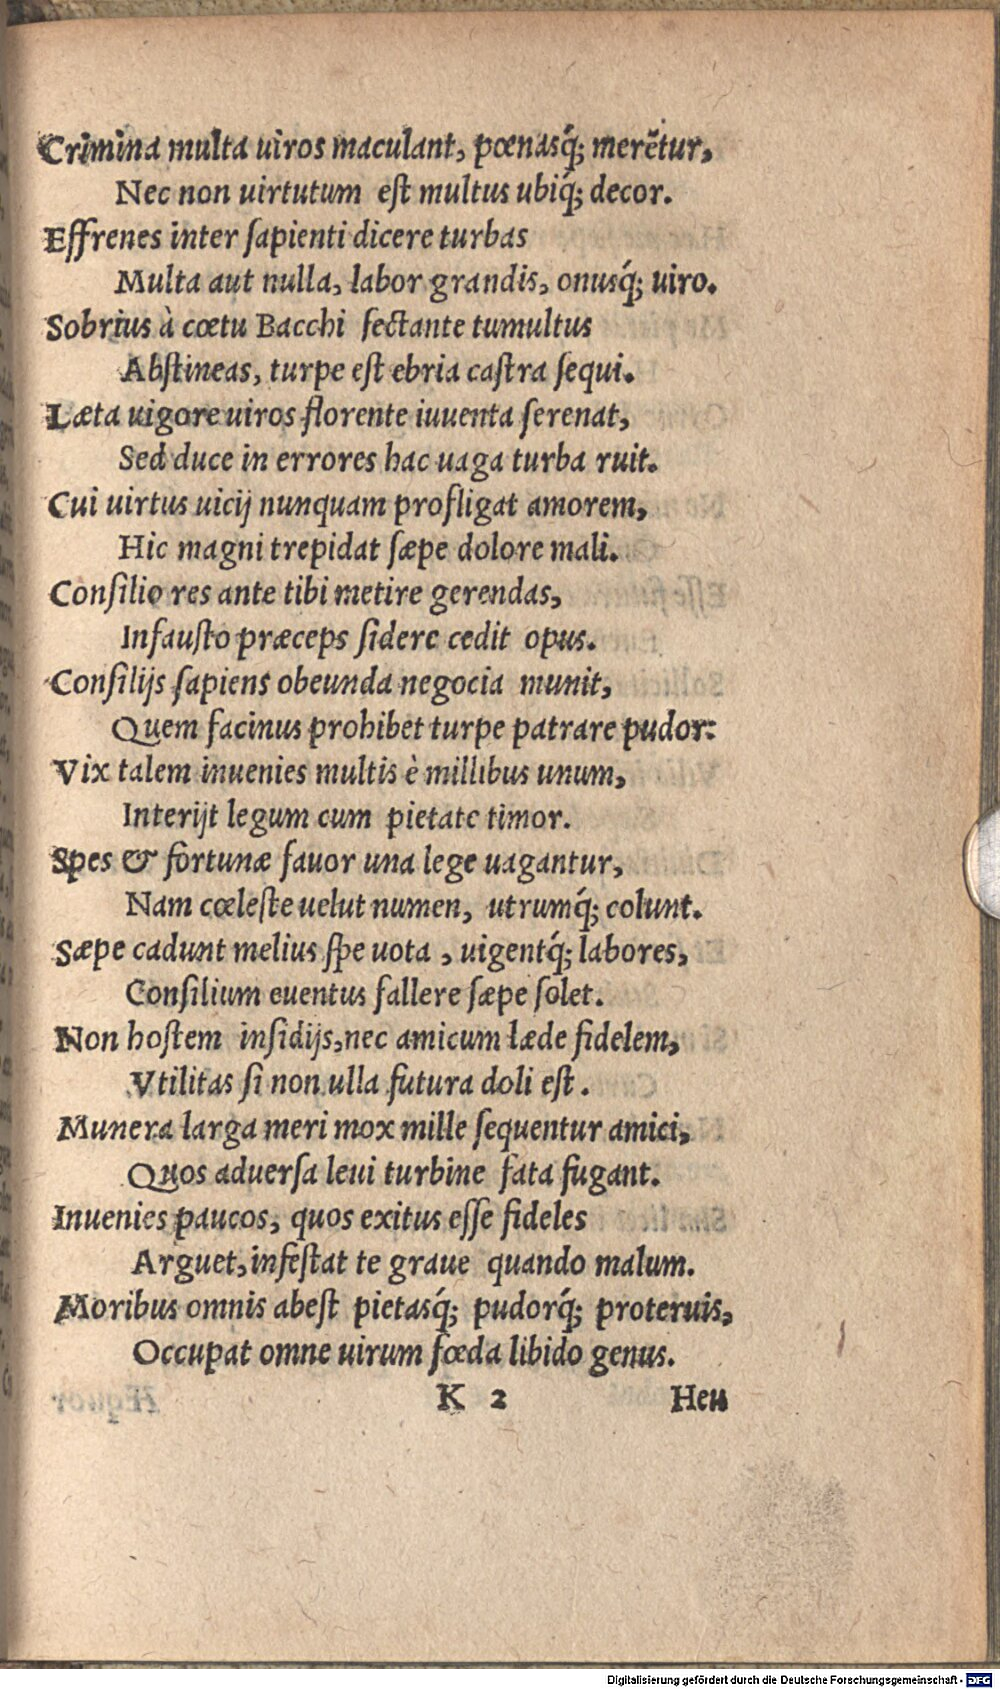 Crimina multa uiros maculant, pœnasq́; merẽtur,
Nec non uirtutum est multus ubiq́; decor.
Effrenes inter sapienti dicere turbas
Multa aut nulla, labor grandis, onusq́; uiro.
Sobrius à cœtu Bacchi sectante tumultus
Abstineas, turpe est ebria castra sequi.
Læta uigore uiros florente iuuenta serenat,
Sed duce in errores hac uaga turba ruit.
Cui uirtus uicij nunquam profligat amorem,
Hic magni trepidat sæpe dolore mali.
Consilio res ante tibi metire gerendas,
Infausto præceps sidere cedit opus.
Consilijs sapiens obeunda negocia munit,
Quem facinus prohibet turpe patrare pudor:
Vix talem inuenies multis è millibus unum,
Interijt legum cum pietate timor.
Spes & fortunæ fauor una lege uagantur,
Nam cœleste uelut numen, utrumq́; colunt.
Sæpe cadunt melius spe uota, uigentq́; labores,
Consilium euentus fallere sæpe solet.
Non hostem insidijs, nec amicum læde fidelem,
Vtilitas si non ulla futura doli est.
Munera larga meri mox mille sequentur amici,
Quos aduersa leui turbine fata fugant.
Inuenies paucos, quos exitus esse fideles
Arguet, infestat te graue quando malum.
Moribus omnis abest pietasq́; pudorq́; proteruis,
Occupat omne uirum fœda libido genus.
K 2 Heu
Digitalisierung gefördert durch die Deutsche Forschungsgemeinschaft - DFG